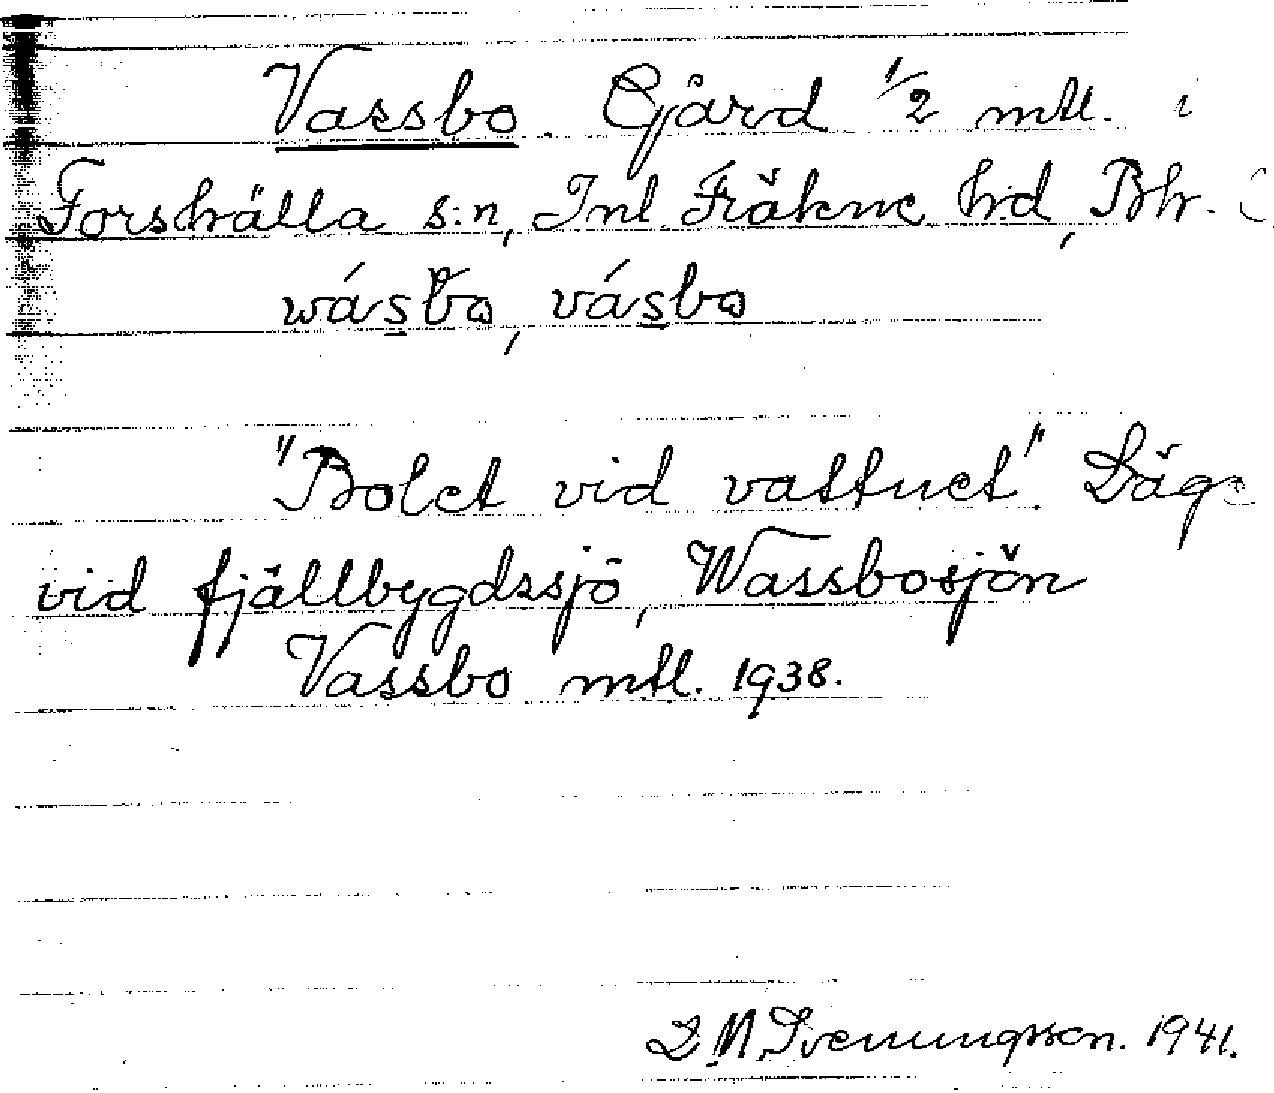 Vassbo. Gård 1/2 mtl. i
Forshälla s:n, Inl. Fräkne hd, Bh.
wásbo, vásbo
"Bolet vid vattnet" Läge
vid fjällbygdssjö, Wassbosjön
Vassbo mtl. 1938.
D. N. Svenungsson. 1941.